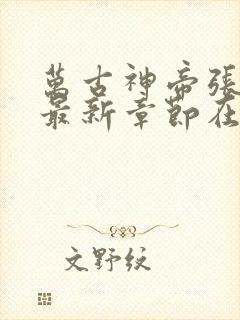 萬古神帝張
最新章節在
文野紋